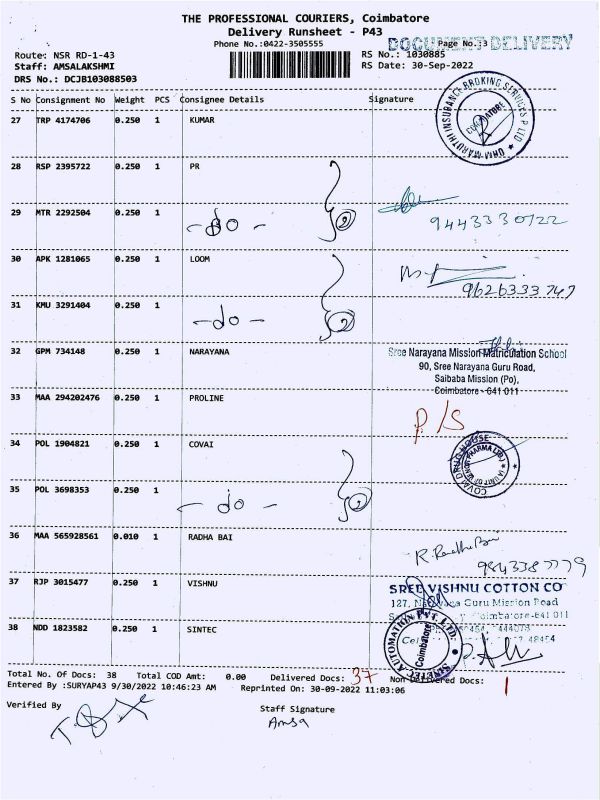 THE PROFESSIONAL COURIERS, Coimbatore
Delivery Runsheet - P43
Phone No.:0422-3505555
DOCUMENT DELIVERY
Page No.:3
Route: NSR RD-1-43
RS No.: 1030885
Staff: AMSALAKSHMI
RS Date: 30-Sep-2022
DRS No.: DCJB103088503
S No Consignment No Weight PCS Consignee Details Signature
27 TRP 4174706 0.250 1 KUMAR
OM MARUTHI INSURANCE BROKING SERVICES P LTD
COIMBATORE
28 RSP 2395722 0.250 1 PR
29 MTR 2292504 0.250 1
-do- 2
9443330722
30 APK 1281065 0.250 1 LOOM
9626333747
31 KMU 3291404 0.250 1
-do- 2
32 GPM 734148 0.250 1 NARAYANA
Sree Narayana Mission Matriculation School
90, Sree Narayana Guru Road,
Saibaba Mission (Po),
Coimbatore - 641 011
33 MAA 294202476 0.250 1 PROLINE
P/S
34 POL 1904821 0.250 1 COVAI
COVAI DRUG HOUSE
35 POL 3698353 0.250 1
- do - 2
36 MAA 565928561 0.010 1 RADHA BAI
R. Radha Bai
37 RJP 3015477 0.250 1 VISHNU
SREE VISHNU COTTON CO
127, Narayana Guru Mission Road
Coimbatore-641 011
Cell
38 NDD 1823582 0.250 1 SINTEC
SINETEC AUTOMATION PVT. LTD.
Coimbatore
Total No. Of Docs: 38 Total COD Amt: 0.00 Delivered Docs: 37 Non Delivered Docs: 1
Entered By :SURYAP43 9/30/2022 10:46:23 AM Reprinted On: 30-09-2022 11:03:06
Verified By
Staff Signature
Amsa